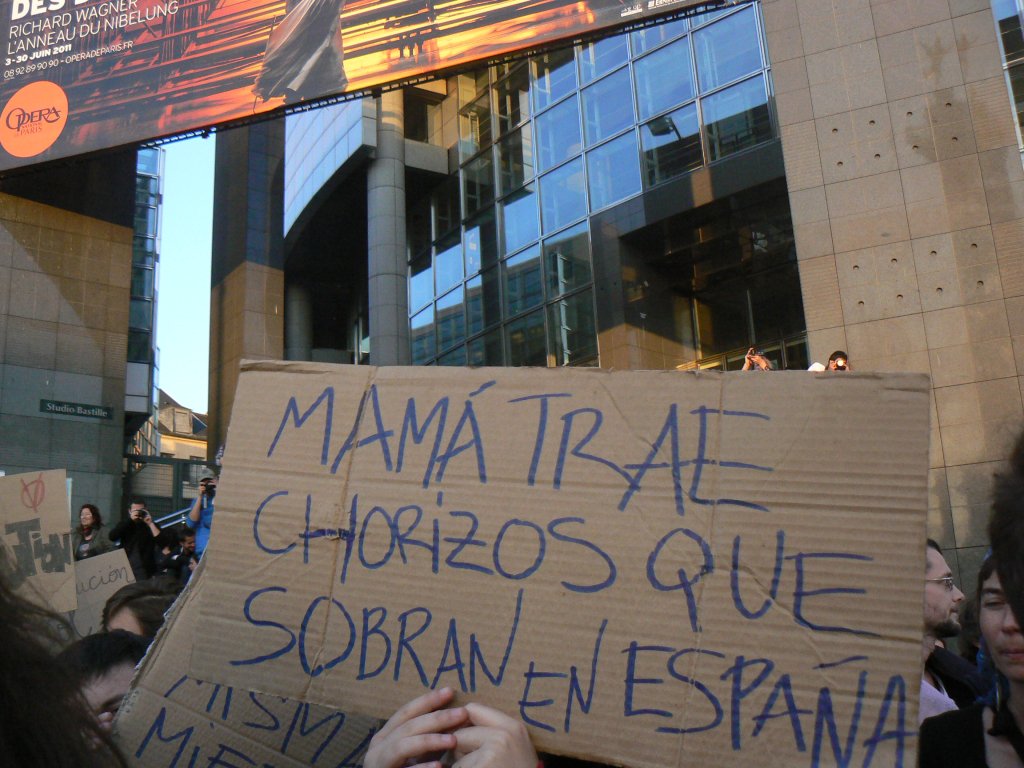 RICHARD WAGNER
L'ANNEAU DU NIBELUNG
3-30 JUIN 2011
08 92 89 90 90 - OPERADEPARIS.FR
OPERA
PARIS
Studio Bastille
MAMÁ TRAE
CHORIZOS QUE
SOBRAN EN ESPAÑA
ución
MISMA